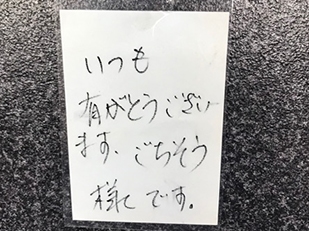 いつも
有がとうござい
ます、ごちそう
様でです。